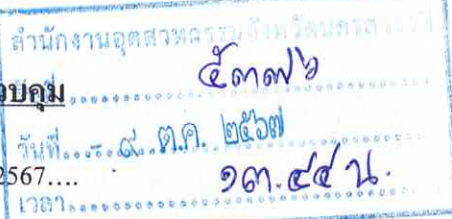 สำนักงานอุตสาหกรรมจังหวัดนครส
บคุม ๕๓๗๖
วันที่ - ๙ ต.ค. ๒๕๖๗
2567....
เวลา ๑๓.๔๔ น.